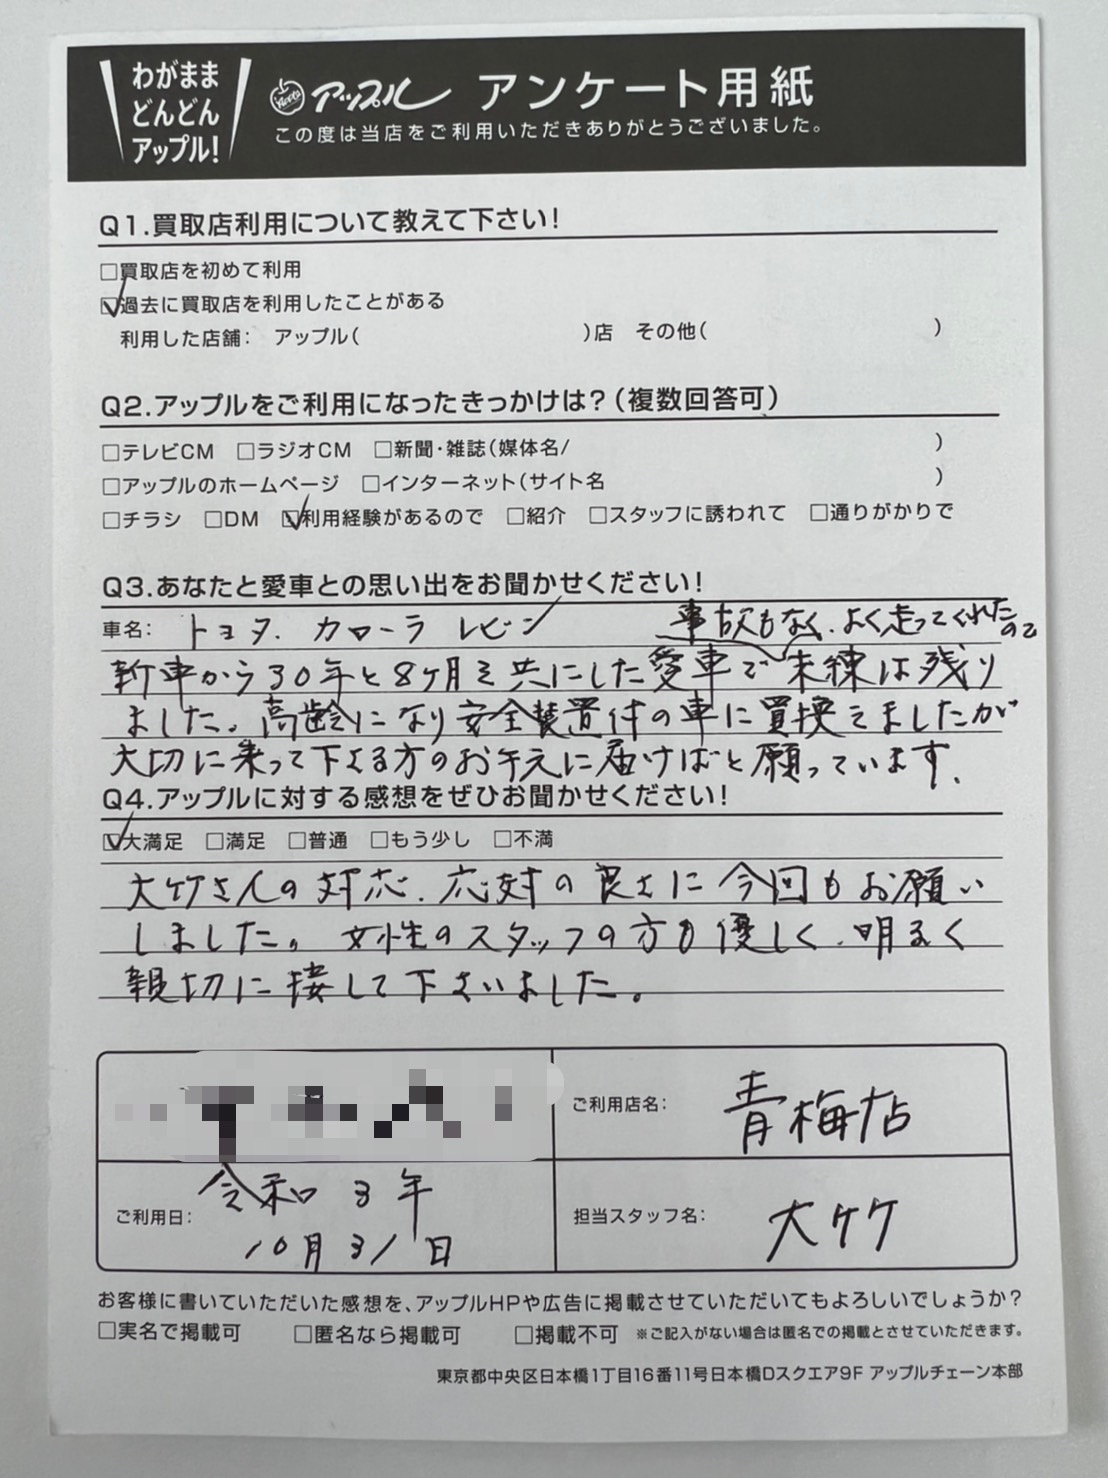 わがまま
どんどん
アップル!
Apple アップル アンケート用紙
この度は当店をご利用いただきありがとうございました。
Q1.買取店利用について教えて下さい!
□買取店を初めて利用
☑過去に買取店を利用したことがある
利用した店舗: アップル( )店 その他( )
Q2.アップルをご利用になったきっかけは?(複数回答可)
□テレビCM □ラジオCM □新聞・雑誌(媒体名/ )
□アップルのホームページ □インターネット(サイト名 )
□チラシ □DM ☑利用経験があるので □紹介 □スタッフに誘われて □通りがかりで
Q3.あなたと愛車との思い出をお聞かせください!
車名: トヨタ. カローラ レビン
事故もなく、よく走ってくれたので
新車から30年と8ヶ月を共にした愛車で未練は残り
ました。高齢になり安全装置付の車に買換えましたが
大切に乗って下さる方のお手元に届けばと願っています.
Q4.アップルに対する感想をぜひお聞かせください!
☑大満足 □満足 □普通 □もう少し □不満
大竹さんの対応、応対の良さに今回もお願い
しました。女性のスタッフの方も優しく、明るく
親切に接して下さいました。
ご利用店名: 青梅店
ご利用日: 令和3年
10月31日
担当スタッフ名: 大竹
お客様に書いていただいた感想を、アップルHPや広告に掲載させていただいてもよろしいでしょうか?
□実名で掲載可 □匿名なら掲載可 □掲載不可 ※ご記入がない場合は匿名での掲載とさせていただきます。
東京都中央区日本橋1丁目16番11号日本橋Dスクエア9F アップルチェーン本部